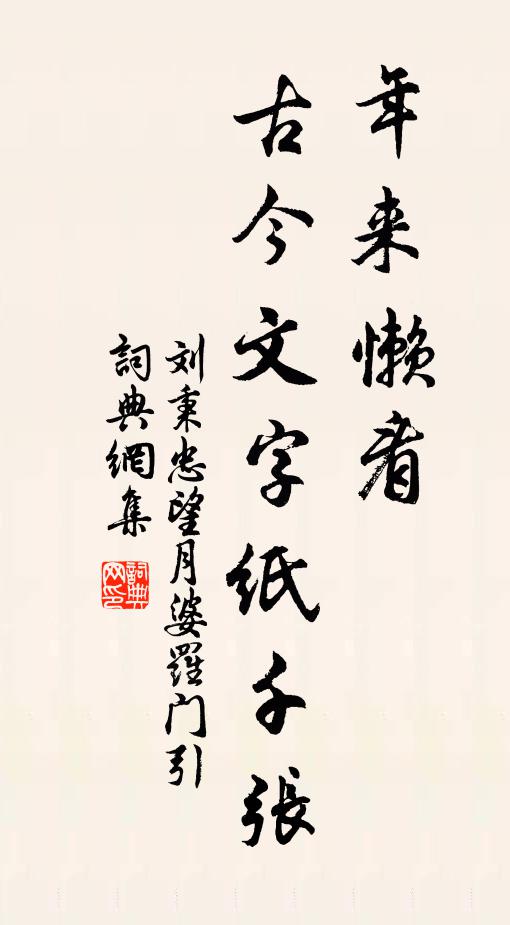 年来懒看
古今文字纸千張
刘秉忠望月婆羅门引
詞典網集
詞典网印